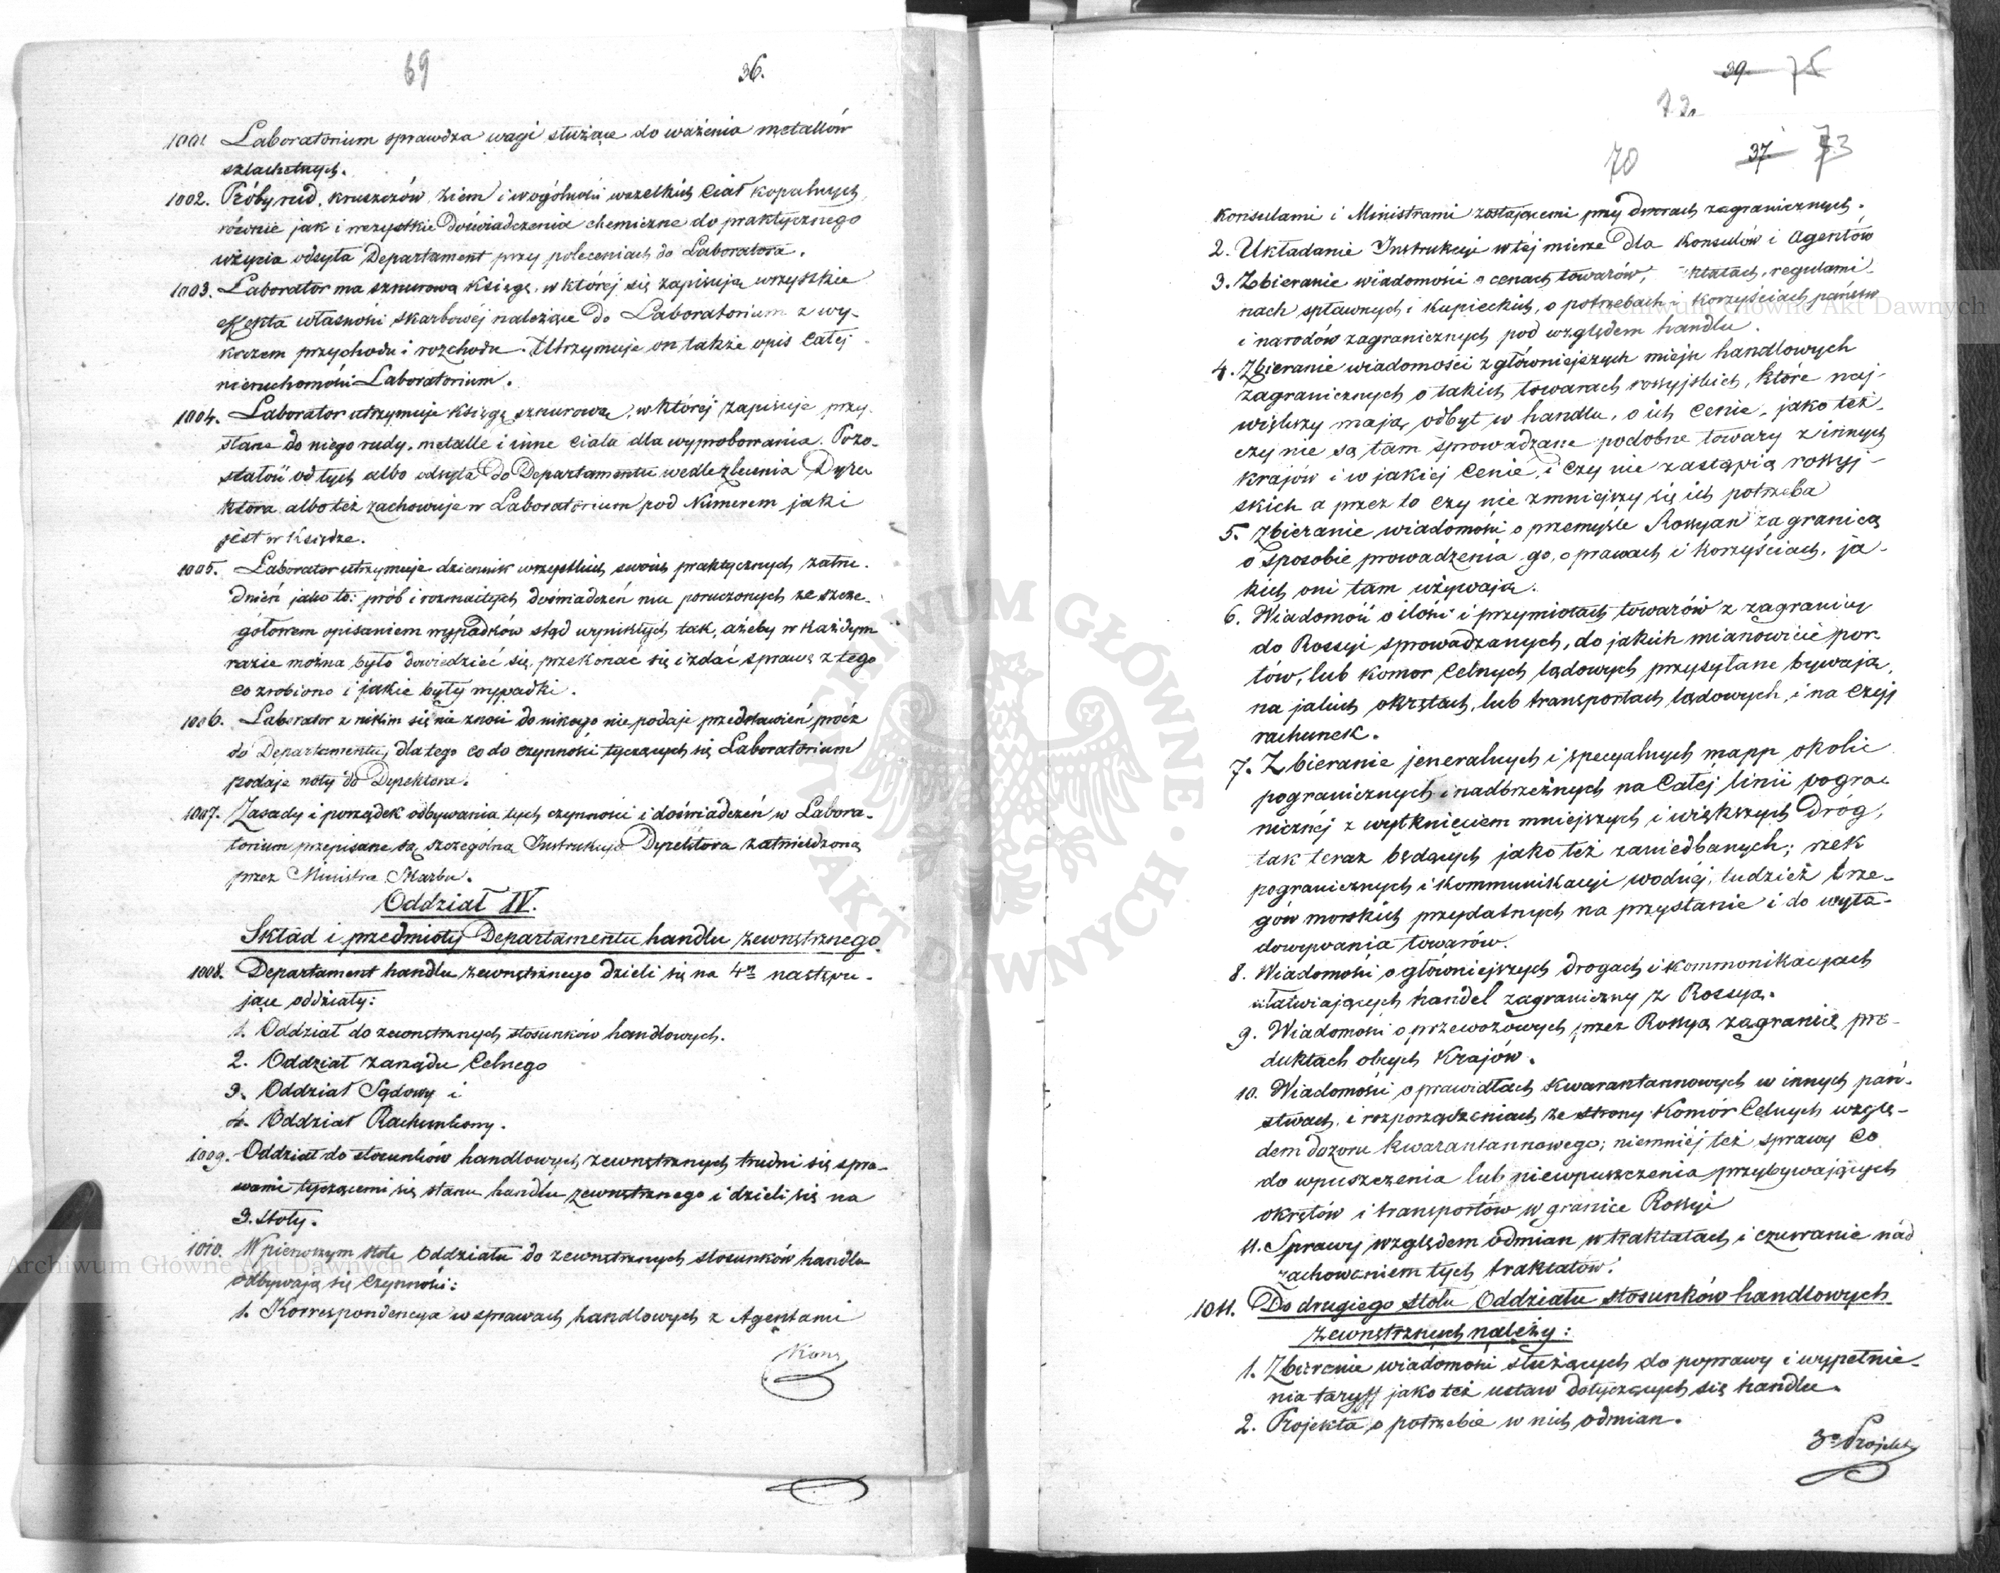 69
36.
1001. Laboratorium sprawdza wagi służące do ważenia metallów
szlachetnych.
1002. Próby rud, kruszczów, ziem i wogólności wszelkich Ciał kopalnych,
równie jak i wszystkie doświadczenia chemiczne do praktycznego
użycia odsyła Departament przy poleceniach do Laboratora.
1003. Laborator ma sznurową Księgę, w której się zapisują wszystkie
effekta własności skarbowej należące do Laboratorium z wy-
kazem przychodu i rozchodu. Utrzymuje on także opis całej
nieruchomości Laboratorium.
1004. Laborator utrzymuje Księgę sznurową, w której zapisuje przy-
słane do niego rudy, metalle i inne ciała dla wyprobowania. Pozo-
stałość od tych albo odsyła do Departamentu wedle zlecenia Dyre-
ktora albo też zachowuje w Laboratorium pod Numerem jaki
jest w Księdze.
1005. Laborator utrzymuje dziennik wszystkich swoich praktycznych zatru-
dnień jako to: prób i rozmaitych doświadczeń mu poruczonych ze szcze-
gółowem opisaniem wypadków stąd wynikłych tak, ażeby w każdym
razie można było dowiedzieć się, przekonać się i zdać sprawę z tego
co zrobiono i jakie były wypadki.
1006. Laborator z nikim się nie znosi do nikogo nie podaje przedstawień prócz
do Departamentu, dla tego co do czynności tyczących się Laboratorium
podaje noty do Dyrektora.
1007. Zasady i porządek odbywania tych czynności i doświadczeń w Labora-
torium przepisane są szczególną Instrukcją Dyrektora zatwierdzoną
przez Ministra Skarbu.
Oddział IV.
Skład i przedmioty Departamentu handlu zewnętrznego.
1008. Departament handlu zewnętrznego dzieli się na 4ry następu-
jące oddziały:
1. Oddział do zewnętrznych stosunków handlowych.
2. Oddział zarządu Celnego
3. Oddział Sądowy i
4. Oddział Rachunkowy.
1009. Oddział do stosunków handlowych zewnętrznych trudni się spra-
wami tyczącemi się stanu handlu zewnętrznego i dzieli się na
3. stoły.
1010. W pierwszym stole Oddziału do zewnętrznych stosunków handlu
odbywają się czynności:
1. Korrespondencya w sprawach handlowych z Agentami
Kons
39. 75
72.
70 37. 73
Konsulami i Ministrami zostającemi przy dworach zagranicznych.
2. Układanie Instrukcyi w tej mierze dla Konsulów i Agentów
3. Zbieranie wiadomości o cenach towarów, regulami-
nach spławnych i kupieckich, o potrzebach i korzyściach państw
i narodów zagranicznych pod względem handlu.
4. Zbieranie wiadomości z główniejszych miejsc handlowych
zagranicznych o takich towarach rossyjskich, które naj-
większy mają odbyt w handlu, o ich cenie, jako też,
czy nie są tam sprowadzane podobne towary z innych
krajów i w jakiej cenie, i czy nie zastąpią rossyj-
skich a przez to czy nie zmniejszy się ich potrzeba
5. Zbieranie wiadomości o przemyśle Rossyan za granicą
o sposobie prowadzenia go, o prawach i korzyściach, ja-
kich oni tam używają.
6. Wiadomość o ilości i przymiotach towarów z zagranicy
do Rossyi sprowadzanych, do jakich mianowicie por-
tów, lub komor Celnych lądowych przysyłane bywają,
na jakich okrętach, lub transportach lądowych, i na czyj
rachunek.
7. Zbieranie jeneralnych i specyalnych mapp okolic
pogranicznych i nadbrzeżnych na całej linii pogra-
nicznej z wytknięciem mniejszych i większych dróg,
tak teraz będących jako też zaniedbanych; rzek
pogranicznych i kommunikacyi wodnej, tudzież brze-
gów morskich przydatnych na przystanie i do wyła-
dowywania towarów.
8. Wiadomości o główniejszych drogach i kommonikacyach
ułatwiających handel zagraniczny z Rossyą.
9. Wiadomości o przewozowych przez Rossyą zagranicę pro-
duktach obcych Krajów.
10. Wiadomości o prawidłach kwarantannowych w innych pań-
stwach, i rozporządzeniach ze strony Komór Celnych wzglę-
dem dozoru kwarantannowego; niemniej też sprawy co
do wpuszczenia lub niewpuszczenia przybywających
okrętów i transportów w granice Rossyi
11. Sprawy względem odmian w traktatach i czuwanie nad
zachowaniem tych traktatów.
1011. Do drugiego stołu Oddziału stosunków handlowych
zewnętrznych należy:
1. Zbieranie wiadomości służących do poprawy i wypełnie-
nia taryff jako też ustaw dotyczących się handlu.
2. Projekta o potrzebie w nich odmian.
3e Projekt
Archiwum Główne Akt Dawnych
Archiwum Główne Akt Dawnych
ARCHIWUM GŁÓWNE AKT DAWNYCH